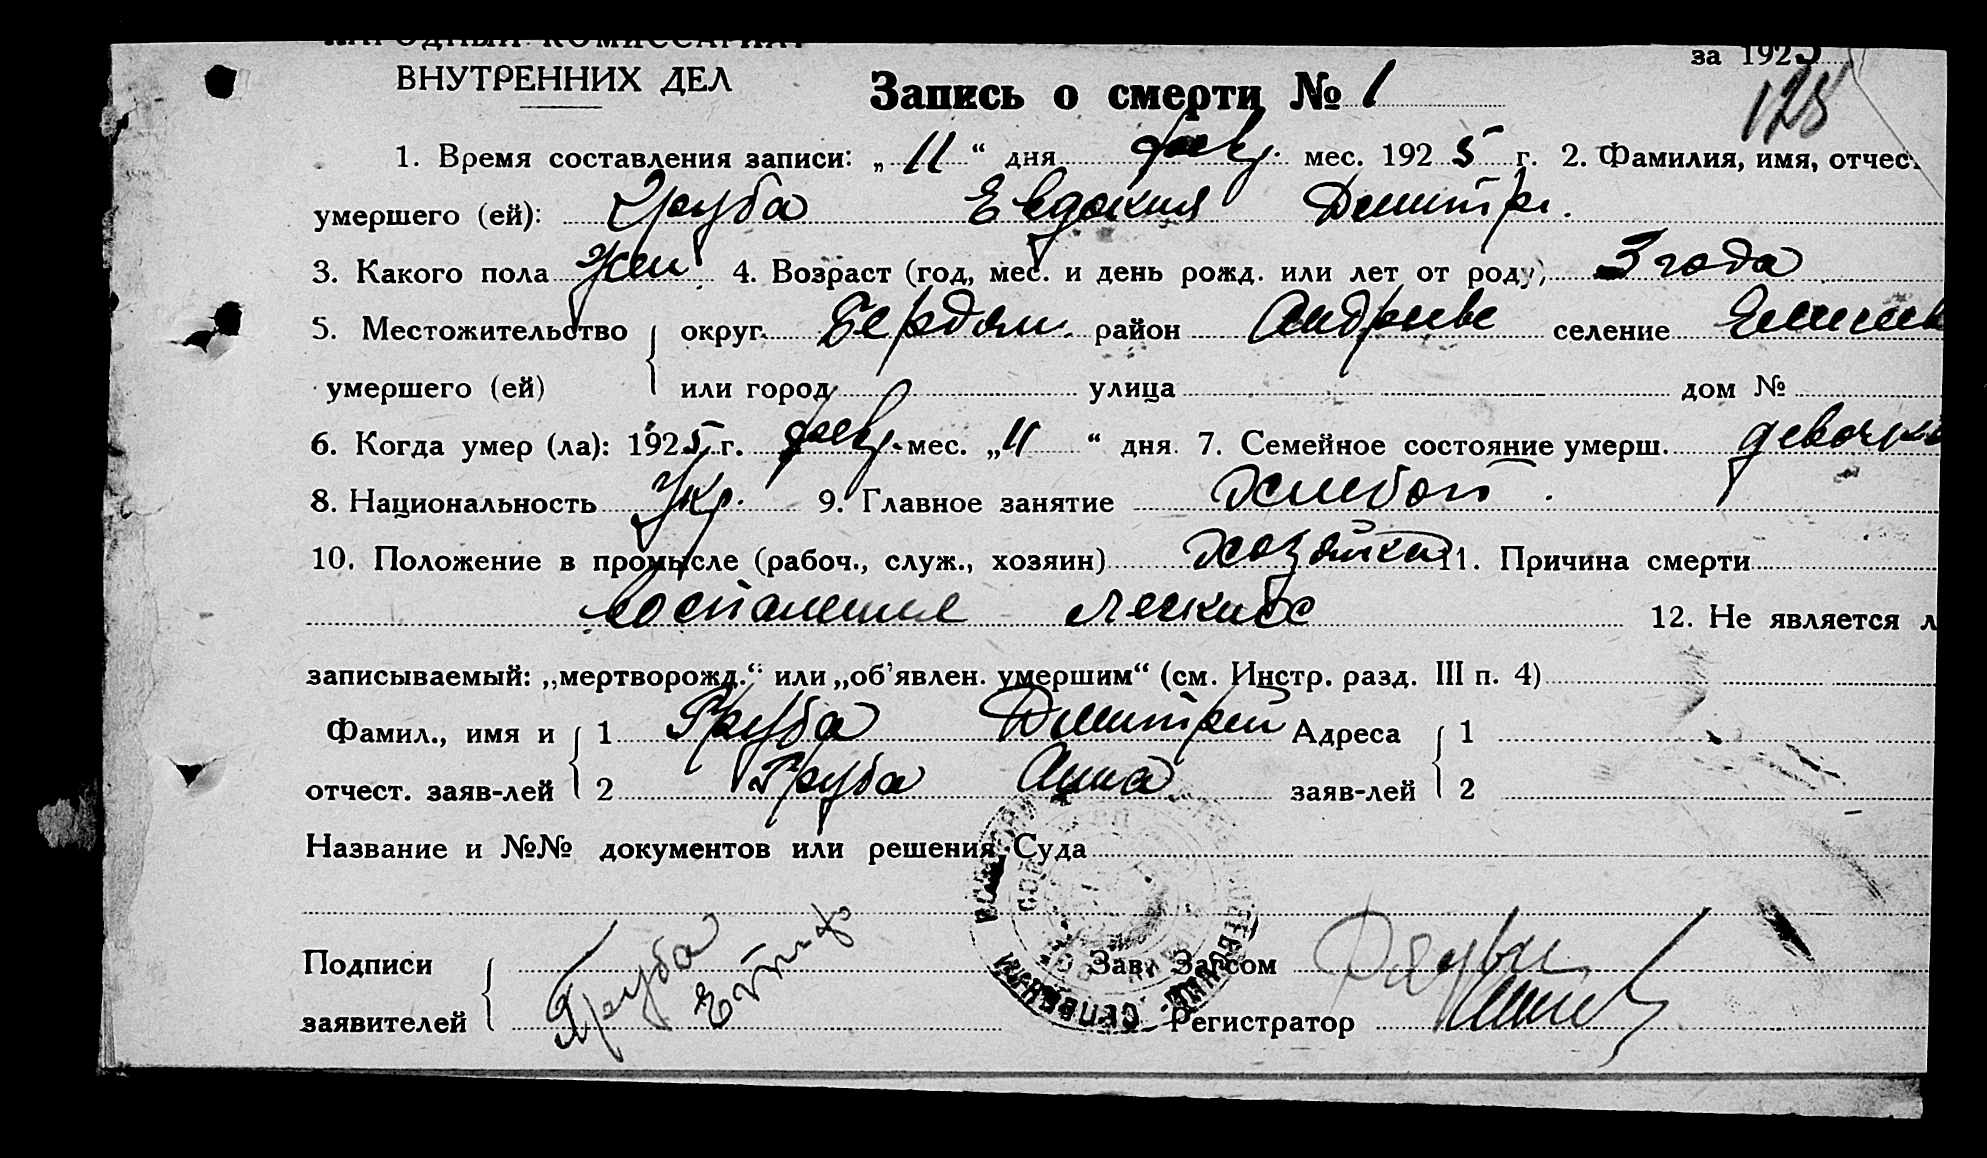 НАРОДНЫЙ КОМИССАРИАТ
за 1925
ВНУТРЕННИХ ДЕЛ
Запись о смерти № 1
128
1. Время составления записи: „ 11 “ дня февр. мес. 192 5 г. 2. Фамилия, имя, отчест
умершего (ей): Груба Евдокия Дмитр.
3. Какого пола Жен 4. Возраст (год, мес. и день рожд. или лет от роду) 3 года
5. Местожительство округ. Бердян. район Андриев селение
умершего (ей) или город улица дом №
6. Когда умер (ла): 1925 г. февр. мес. „ 11 “ дня. 7. Семейное состояние умерш. девочка
8. Национальность Укр. 9. Главное занятие Хлебоп.
10. Положение в промысле (рабоч., служ., хозяин) хозяйка 11. Причина смерти
воспаление легких 12. Не является л
записываемый: „мертворожд.“ или „об’явлен. умершим“ (см. Инстр. разд. III п. 4)
Фамил., имя и 1 Груба Дмитрий Адреса 1
отчест. заяв-лей 2 Груба Анна заяв-лей 2
Название и №№ документов или решения Суда
Подписи Груба Зав. Загсом
заявителей Регистратор